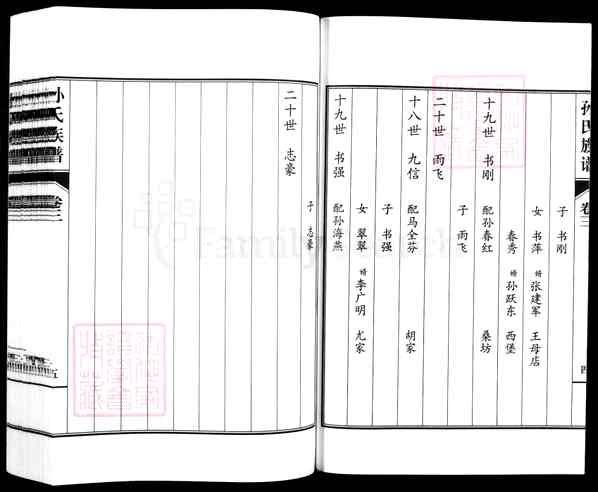 孙氏族谱 卷三 四
子 书刚
女 书萍 婿 张建军 王母店
春秀 婿 孙跃东 西堡
十九世 书刚 配孙春红 桑坊
子 雨飞
二十世 雨飞
十八世 九信 配马全芬 胡家
子 书强
女 翠翠 婿 李广明 尤家
十九世 书强 配孙海燕
子 志豪
二十世 志豪
孙氏族谱 卷三 五
FamilySearch